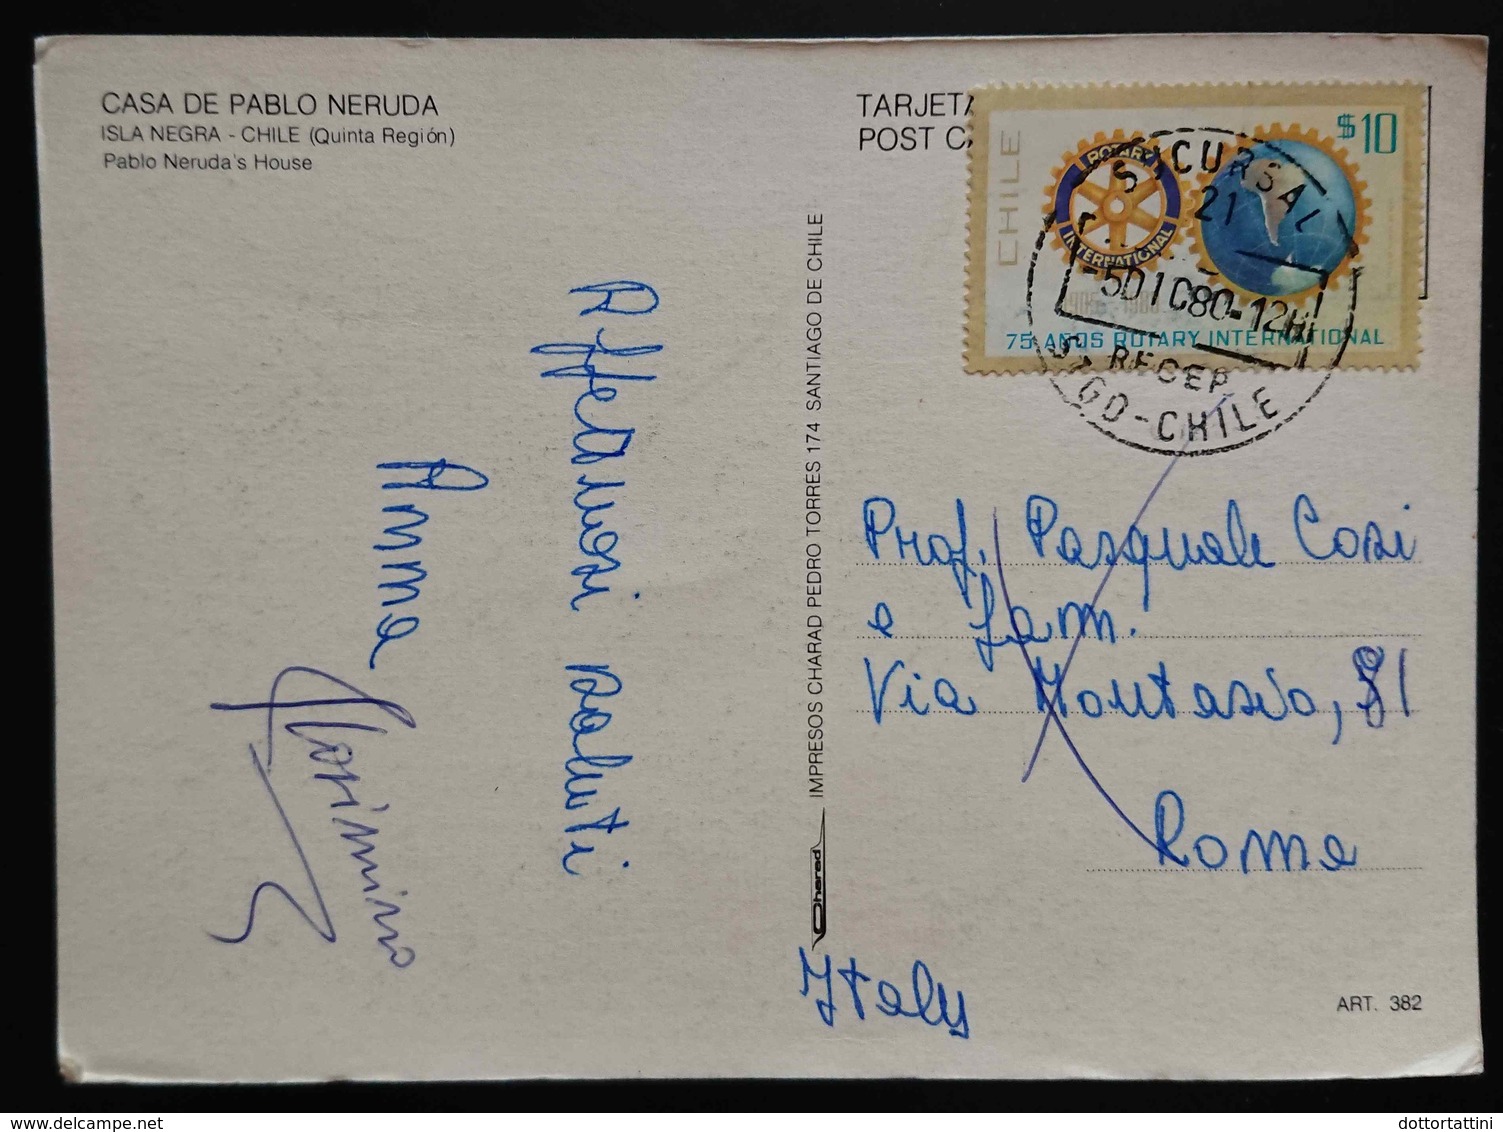 CASA DE PABLO NERUDA
ISLA NEGRA - CHILE (Quinta Región)
Pablo Neruda's House
TARJETA
POST CA
CHILE
$10
ROTARY
INTERNATIONAL
75 AÑOS ROTARY INTERNATIONAL
SUCURSAL
21
-5DIC80-12H
RECEP
STGO-CHILE
Affettuosi saluti
Anna
IMPRESOS CHARAD PEDRO TORRES 174 SANTIAGO DE CHILE
Charad
Prof. Pasquale Cosi
e fam.
Via Montasio, 81
Roma
Italy
ART. 382
dottortattini